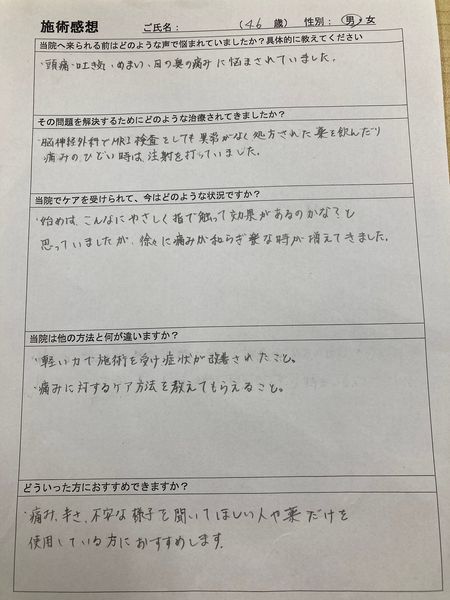 施術感想 ご氏名: (46 歳) 性別: 男・女
当院へ来られる前はどのような声で悩まれていましたか?具体的に教えてください
・頭痛・吐き気・めまい・目の奥の痛みに悩まされていました。
その問題を解決するためにどのような治療されてきましたか?
・脳神経外科でMRI検査をしても異常がなく処方された薬を飲んだり
痛みのひどい時は、注射を打っていました。
当院でケアを受けられて、今はどのような状況ですか?
・始めは、こんなにやさしく指で触って効果があるのかな?と
思っていましたが、徐々に痛みが和らぎ楽な時が増えてきました。
当院は他の方法と何が違いますか?
・軽い力で施術を受け症状が改善されたこと。
・痛みに対するケア方法を教えてもらえること。
どういった方におすすめできますか?
・痛み、辛さ、不安な様子を聞いてほしい人や薬だけを
使用している方におすすめします。